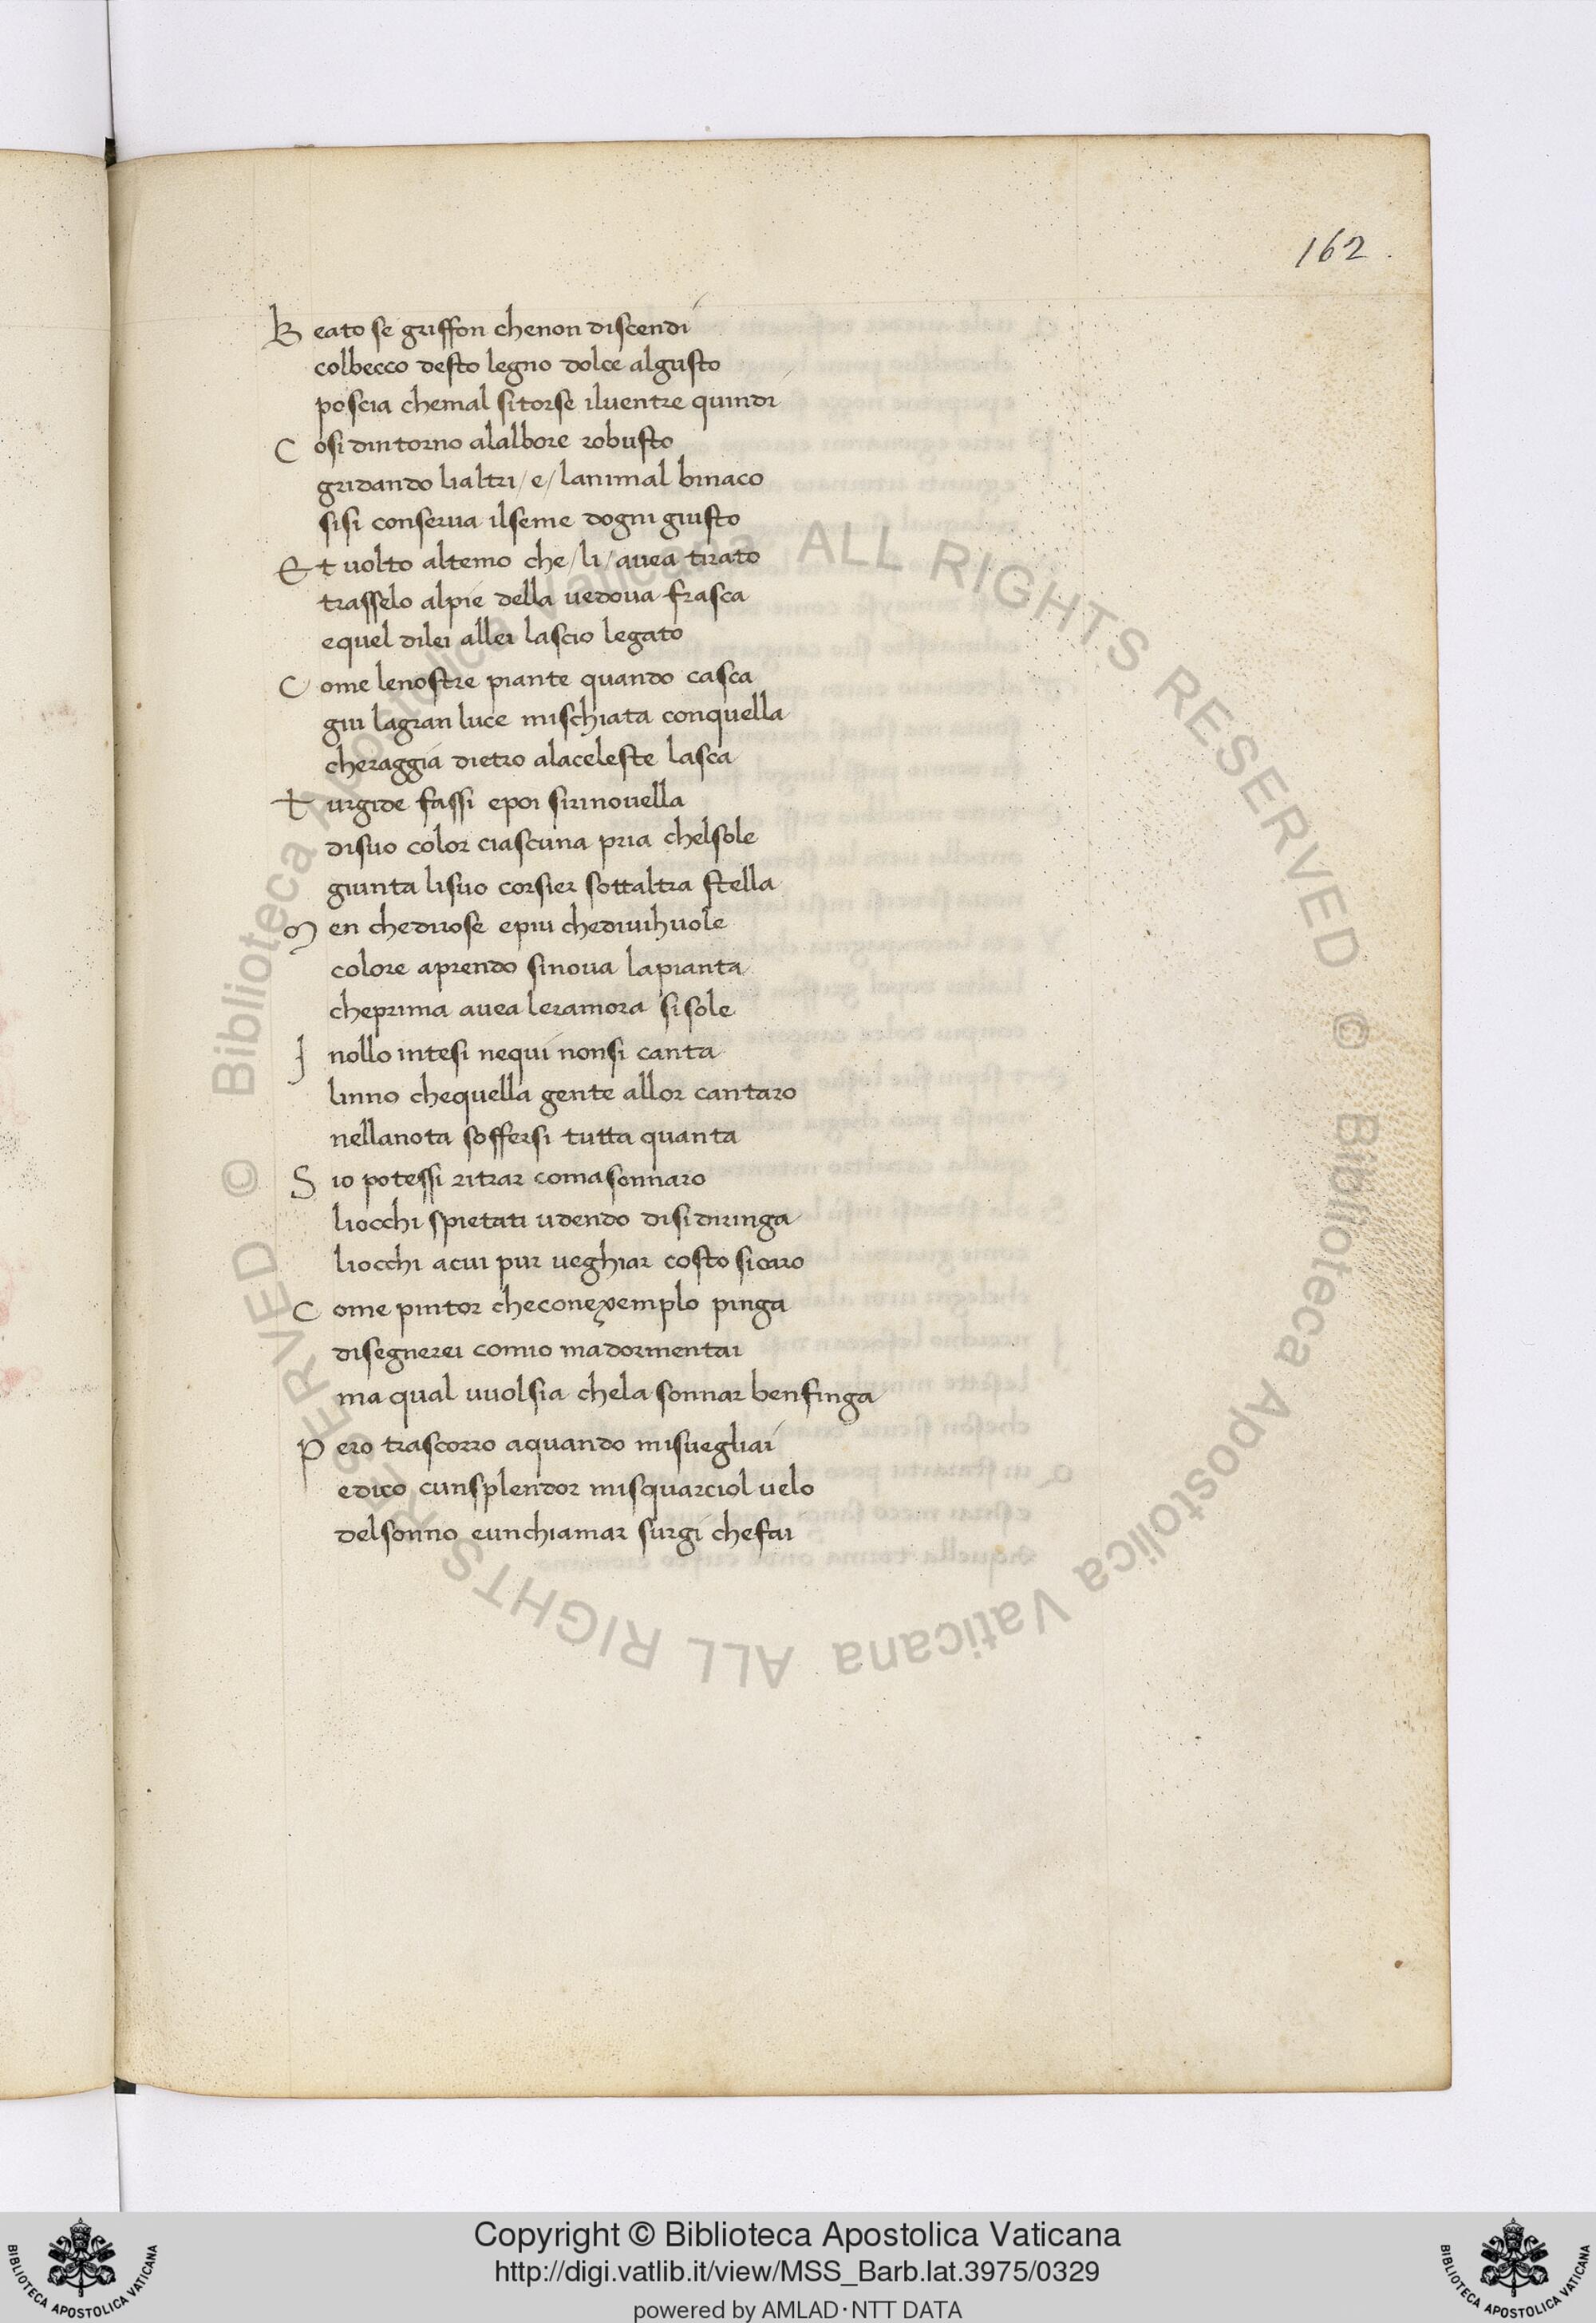 162.
Beato se griffon chenon discendi
colbecco desto legno dolce algusto
poscia chemal sitorse iluentre quindi
Cosi dintorno alalbore robusto
gridando lialtri/e/lanimal binaco
sisi conserua ilseme dogni giusto
Et uolto altemo che/li/auea tirato
trasselo alpie della uedoua frasca
equel dilei allei lascio legato
Come lenostre piante quando casca
giu lagran luce mischiata conquella
cheraggia dietro alaceleste lasca
turgide fassi epoi sirinouella
disuo color ciascuna pria chelsole
giunta lisuo corsier sottaltra stella
Men chedirose epiu chediuihuole
colore aprendo sinoua lapianta
cheprima auea leramora sisole
Inollo intesi nequi nonsi canta
linno chequella gente allor cantaro
nellanota soffersi tutta quanta
Sio potessi ritrar comasonnaro
liocchi spietati udendo disidiringa
liocchi acui pur ueghiar costo sicaro
Come pintor checonexemplo pinga
disegnerei comio madormentai
ma qual vuolsia chela sonnar benfinga
Pero trascorro aquando misuegliai
edico cunsplendor misquarciol uelo
delsonno eunchiamar surgi chefai
© Biblioteca Apostolica Vaticana ALL RIGHTS RESERVED © Biblioteca Apostolica Vaticana ALL RIGHTS RESERVED
Copyright © Biblioteca Apostolica Vaticana
http://digi.vatlib.it/view/MSS_Barb.lat.3975/0329
powered by AMLAD·NTT DATA
BIBLIOTECA APOSTOLICA VATICANA
BIBLIOTECA APOSTOLICA VATICANA